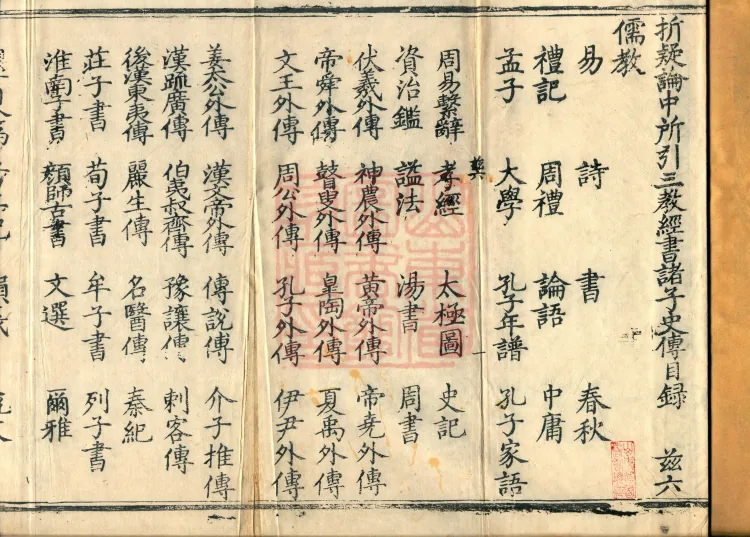 折疑論中所引三教經書諸子史傳目録 茲六
儒教
易 詩 書 春秋
禮記 周禮 論語 中庸
孟子 大學 孔子年譜 孔子家語
周易繫辭 孝經 太極圖 史記
資治鑑 謚法 湯書 周書
伏羲外傳 神農外傳 黃帝外傳 帝堯外傳
帝舜外傳 瞽叟外傳 皐陶外傳 夏禹外傳
文王外傳 周公外傳 孔子外傳 伊尹外傳
姜太公外傳 漢文帝外傳 傳說傳 介子推傳
漢䟽廣傳 伯夷叔齊傳 豫讓傳 刺客傳
後漢東夷傳 麗生傳 名醫傳 秦紀
莊子書 荀子書 牟子書 列子書
淮南子書 顏師古書 文選 爾雅